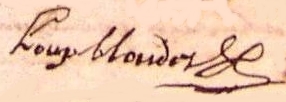 Loup blondet